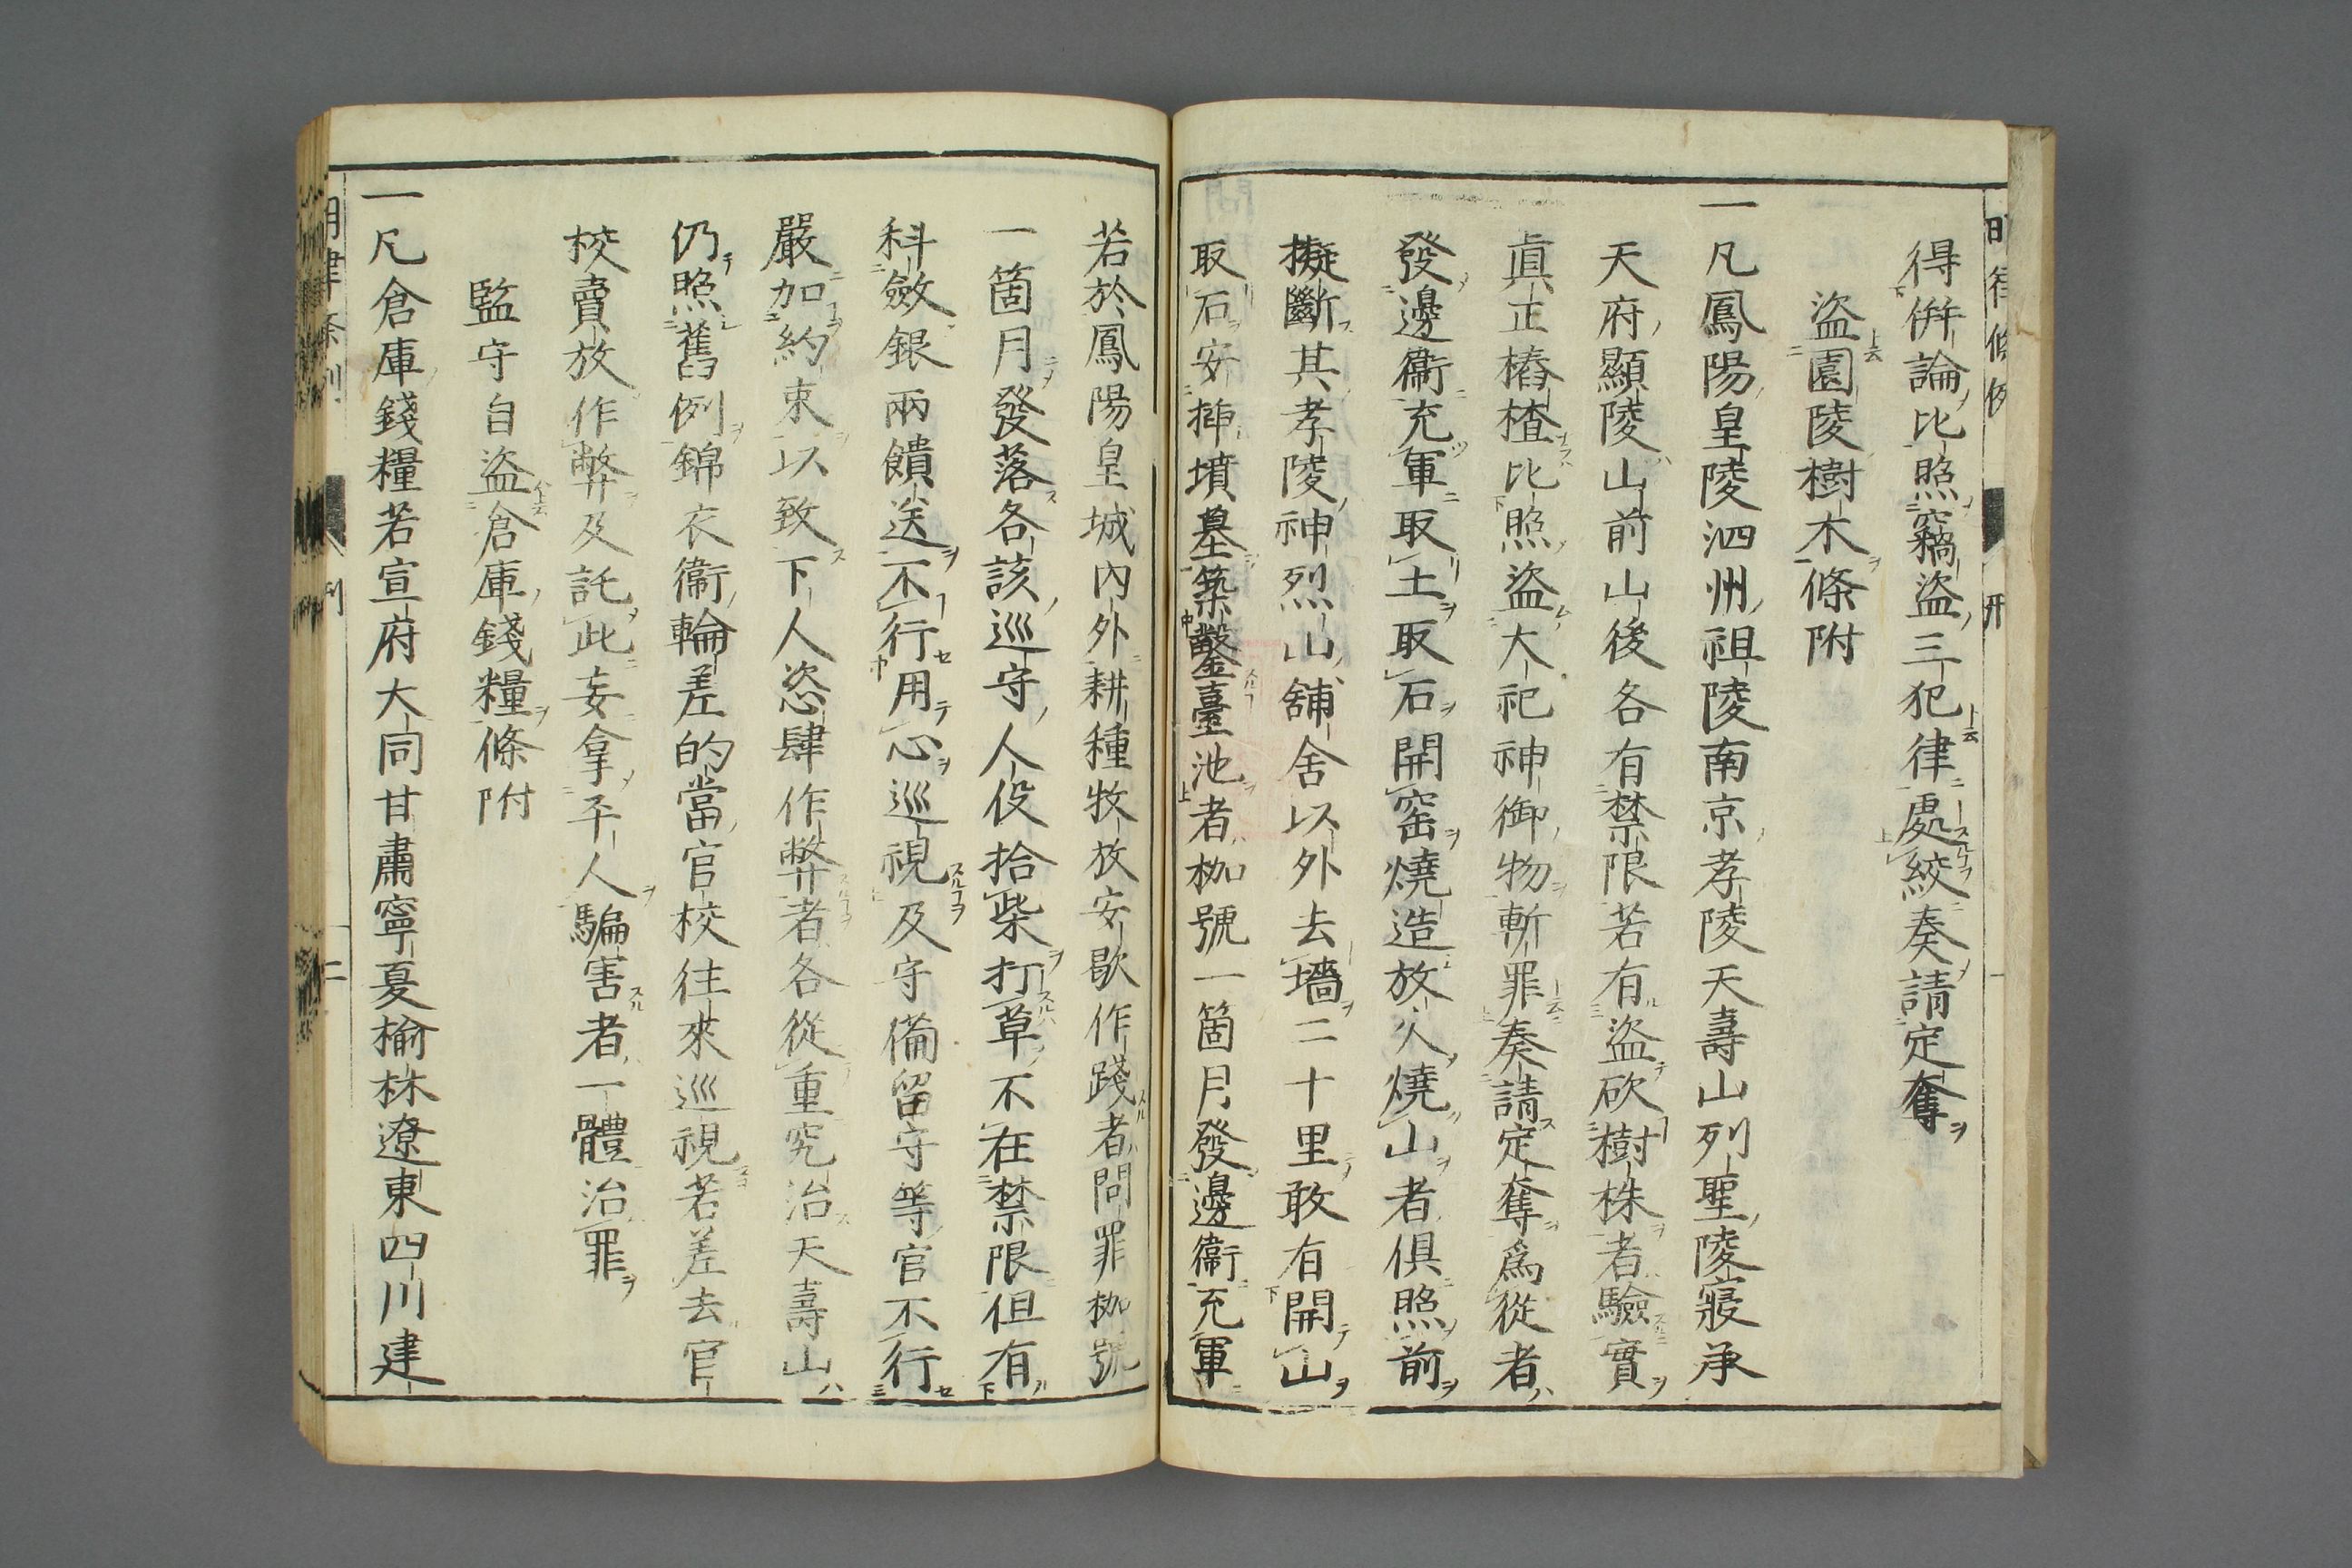 得併論比照竊盜三犯律處絞奏請定奪
盜園陵樹木條附
一凡鳳陽皇陵泗州祖陵南京孝陵天壽山列聖陵寢承
天府顯陵山前山後各有禁限若有盜砍樹株者驗實
眞正樁楂比照盜大祀神御物斬罪奏請定奪爲從者
發邊衞充軍取土取石開窑燒造放火燒山者俱照前
擬斷其孝陵神烈山舖舍以外去墻二十里敢有開山
取石安揷墳墓築鑿臺池者枷號一箇月發邊衞充軍
若於鳳陽皇城內外耕種牧放安歇作踐者問罪枷號
一箇月發落各該巡守人役拾柴打草不在禁限但有
科斂銀兩饋送不行用心巡視及守備留守等官不行
嚴加約束以致下人恣肆作弊者各從重究治天壽山
仍照舊例錦衣衞輪差的當官校往來巡視若差去官
校賣放作弊及託此妄拿平人騙害者一體治罪
監守自盜倉庫錢糧條附
一凡倉庫錢糧若宣府大同甘肅寧夏榆林遼東四川建